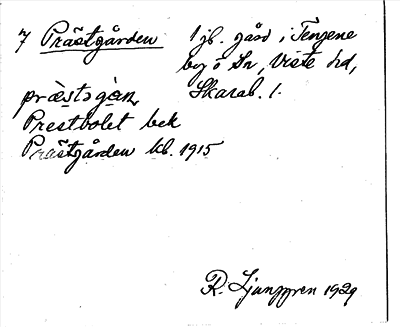 7 Prästgården 1 jb. gård i Tengene
by o Sn, Viste hd,
Skarab. l.
præ̀stsgàn
Prestbolet bek
Prästgården kb. 1915
R. Ljunggren 1929